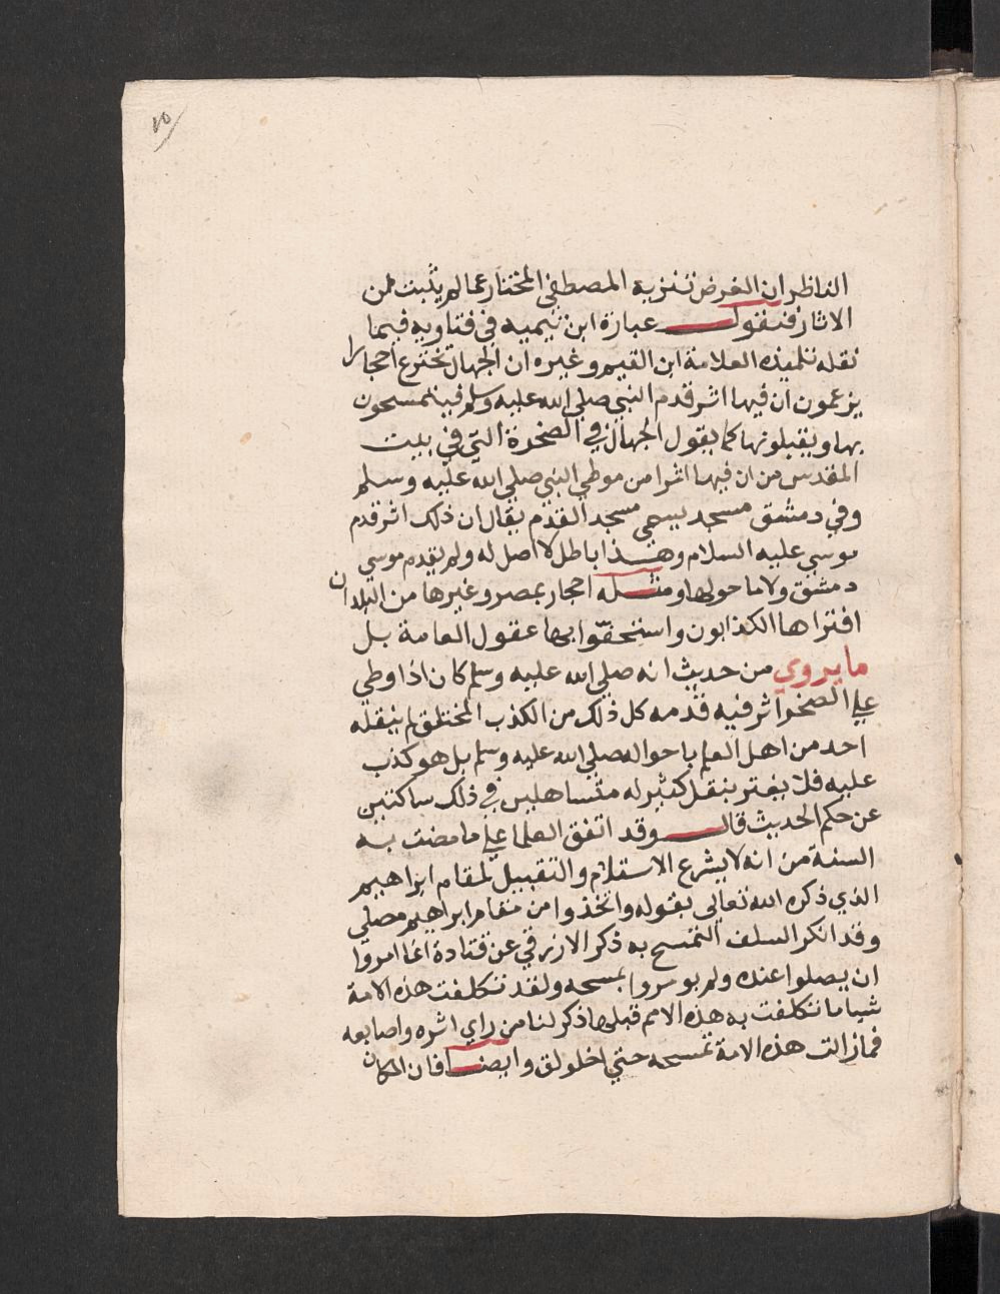 ١٥
الناظر ان الغرض تنزيه المصطفى المختار عما لم يثبت من
الاثار فنقول عبارة ابن تيميه في فتاويه فيما
نقله تلميذه العلامة ابن القيم وغيره ان الجهال تخترع احجارا
يزعمون ان فيها اثر قدم النبي صلى الله عليه وسلم فيتمسحون
بها ويقبلونها كما يقول الجهال في الصخرة التي في بيت
المقدس من ان فيها اثرا من موطي النبي صلي الله عليه وسلم
وفي دمشق مسجد يسمي مسجد القدم يقال ان ذلك اثر قدم
موسي عليه السلام وهذا باطل لا اصل له ولم يقدم موسي
دمشق ولا ما حولها ومثله احجار بمصر وغيرها من البلدان
افتراها الكذابون واستخفوا بها عقول العامة بل
ما يروي من حديث انه صلي الله عليه وسلم كان اذا وطي
علي الصخر اثر فيه قدمه كل ذلك من الكذب المختلق لم ينقله
احد من اهل العلم باحواله صلي الله عليه وسلم بل هو كذب
عليه فلا يغتر بنقل كثير له متساهلين في ذلك ساكتين
عن حكم الحديث قال وقد اتفق العلما علي ما مضت به
السنة من انه لا يشرع الاستلام والتقبيل لمقام ابراهيم
الذي ذكره الله تعالي بقوله واتخذوا من مقام ابراهيم مصلي
وقد انكر السلف التمسح به ذكر الازرقي عن قتادة انما امروا
ان يصلوا عنده ولم يومروا بمسحه ولقد تكلفت هذه الامة
شيا ما تكلفت به هذه الامم قبلها ذكر لنا من راي اثره واصابعه
فمازالت هذه الامة تمسحه حتي اخلولق وايضا فان المكان